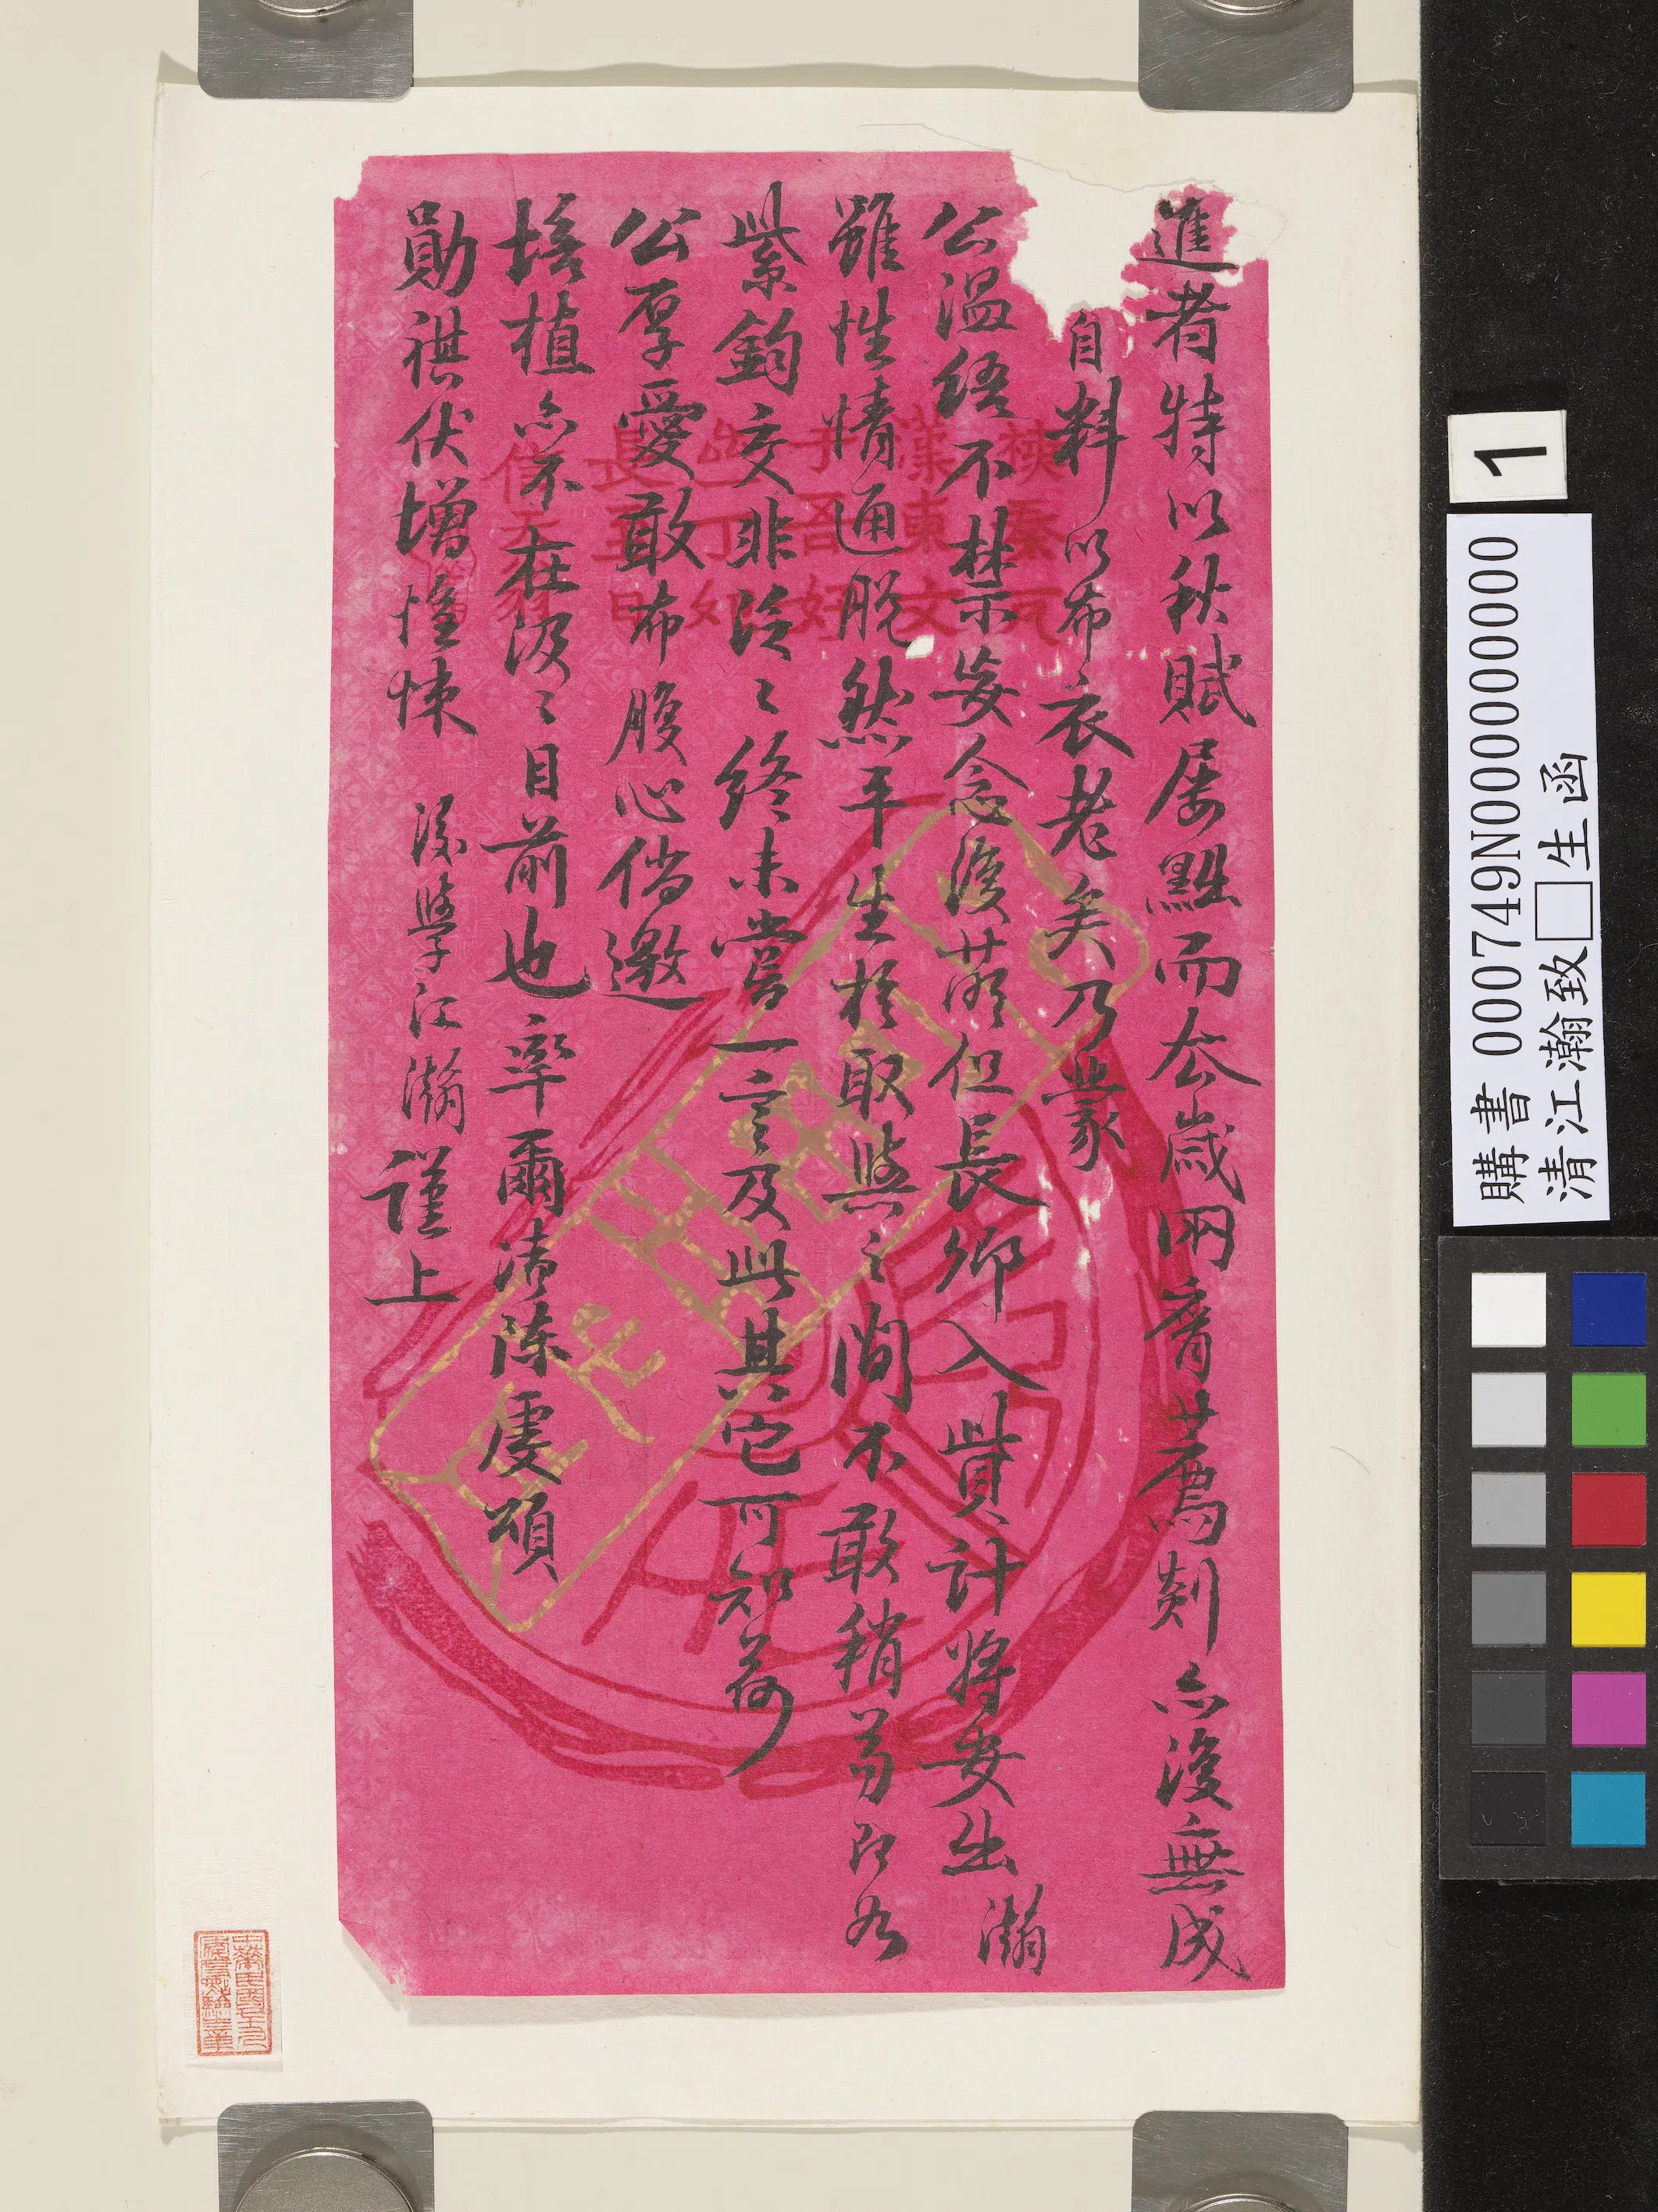 進者特以秋賦屢黜而去歲兩膺薦剡亦復無成
自料以布衣老矣乃蒙
公溫不禁妄念復萌但長卿入貲計將安出瀚
雖性情通脫然平生於取與之間不敢稍苟即如
紫鈞交非泛〻終未嘗一言及此其它可知荷
公厚愛敢布腹心倘邀
培植亦不在汲〻目前也率爾瀆陳虔頌
勛祺伏增惶悚 後學江瀚謹上
1
購書 000749N000000000
清江瀚致□生函